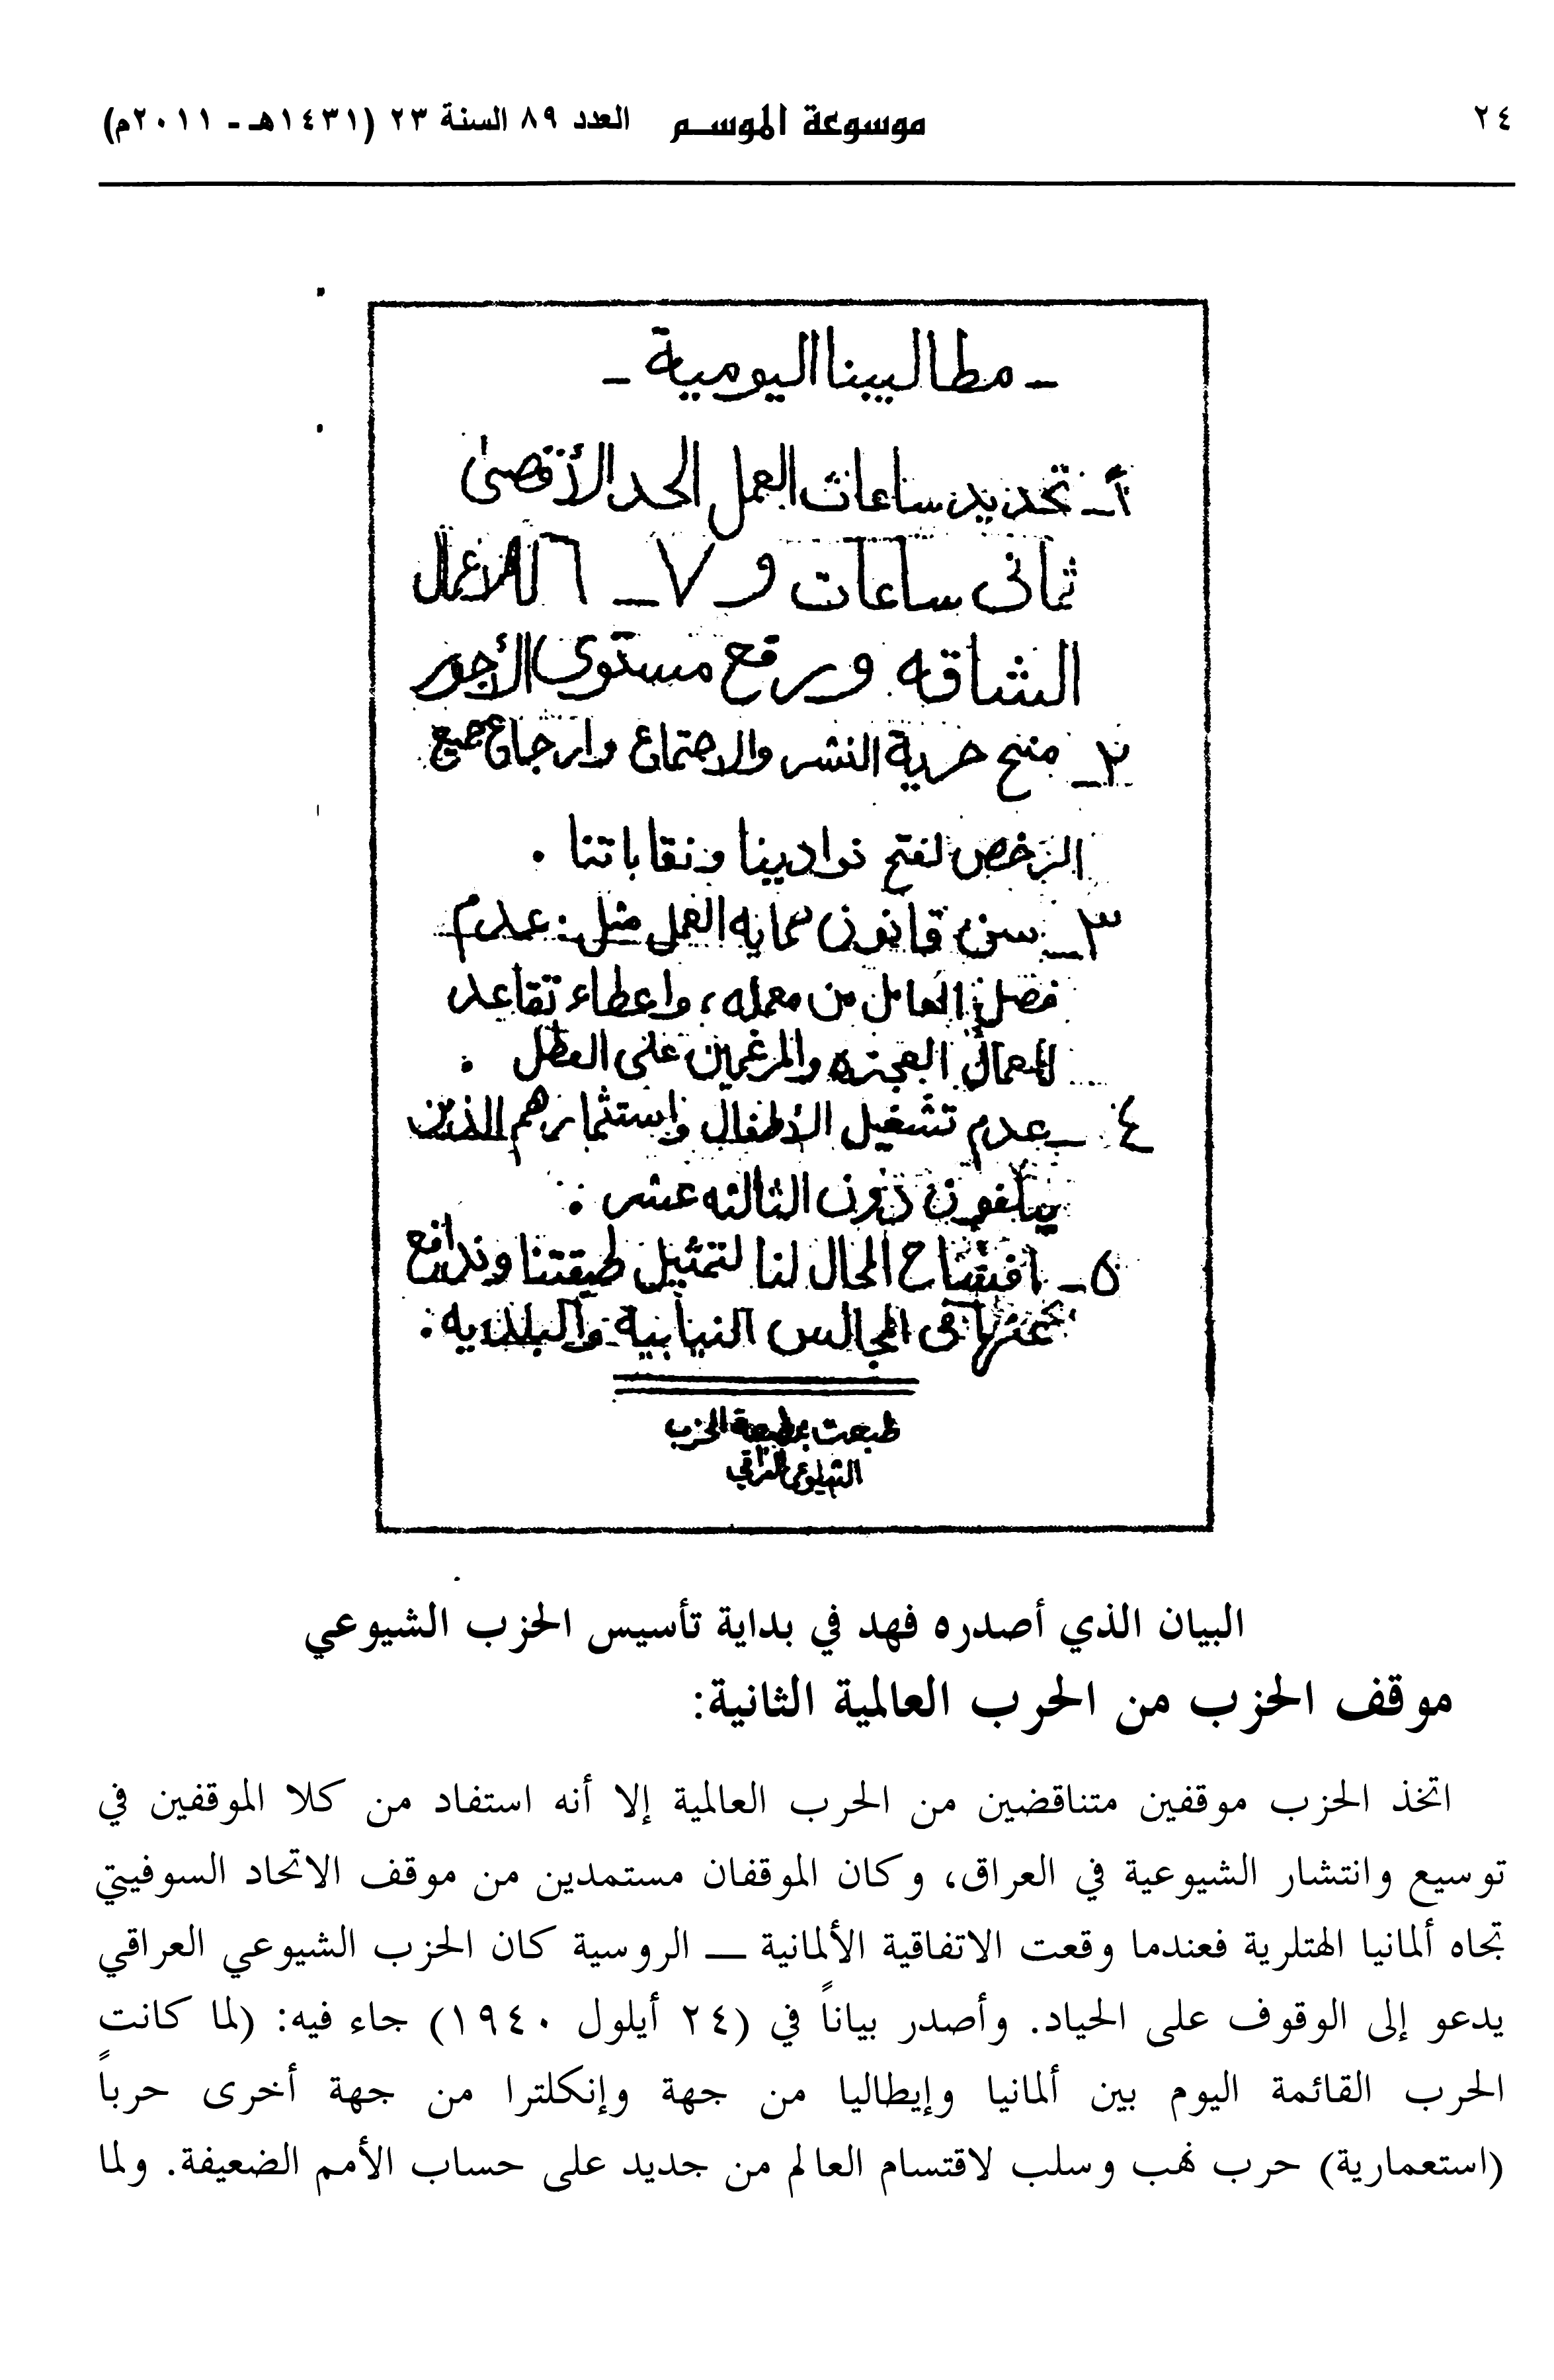 ٢٤ موسوعة الموسم العدد ٨٩ السنة ٢٣ (١٤٣١هـ - ٢٠١١م)
- مطاليبنا اليومية -
١- تحديد ساعات العمل الحد الأقصى
ثمانى ساعات و ٧_٦ للاعمال
الشاقه ورفع مستوى الأجور
٢_ منح حرية النشر والاجتماع وارجاع جميع
الرخص لفتح نوادينا ونقاباتنا .
٣_ سن قانون حمايه العمل مثل: عدم
فصل العامل من معمله، واعطاء تقاعد
للعمال العجزه والمرغمين على العطل .
٤_ عدم تشغيل الأطفال واستثمارهم الذين
يبلغون دون الثالثه عشر .
٥- افتساح المجال لنا لتمثيل طبقتنا وندافع
عنها فى المجالس النيابية والبلديه.
طبعت بمطبعة الحزب
الشيوعي العراقي
البيان الذي أصدره فهد في بداية تأسيس الحزب الشيوعي
موقف الحزب من الحرب العالمية الثانية:
اتخذ الحزب موقفين متناقضين من الحرب العالمية إلا أنه استفاد من كلا الموقفين في
توسيع وانتشار الشيوعية في العراق، وكان الموقفان مستمدين من موقف الاتحاد السوفيتي
تجاه ألمانيا الهتلرية فعندما وقعت الاتفاقية الألمانية ــ الروسية كان الحزب الشيوعي العراقي
يدعو إلى الوقوف على الحياد. وأصدر بياناً في (٢٤ أيلول ١٩٤٠) جاء فيه: (لما كانت
الحرب القائمة اليوم بين ألمانيا وإيطاليا من جهة وإنكلترا من جهة أخرى حرباً
(استعمارية) حرب نهب وسلب لاقتسام العالم من جديد على حساب الأمم الضعيفة. ولما